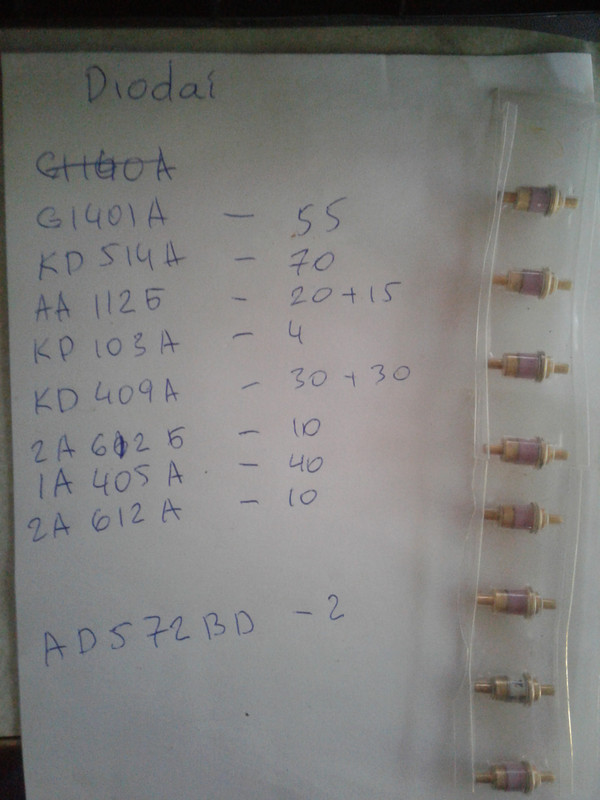 Diodai
G1401A - 55
KD 514A - 70
AA 112Б - 20+15
KD 103A - 4
KD 409A - 30+30
2A 612 Б - 10
1A 405 A - 40
2A 612 A - 10
AD572BD - 2